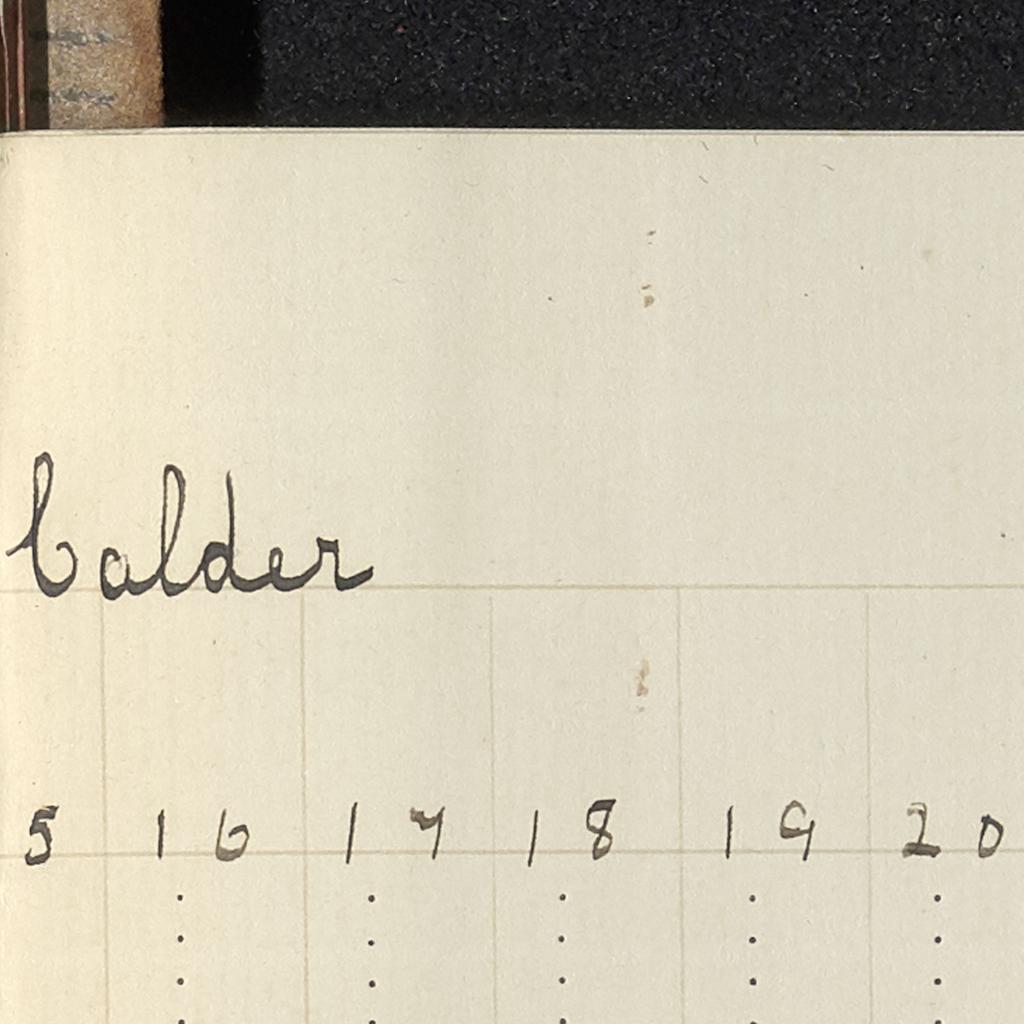 Calder
5 16 17 18 19 20